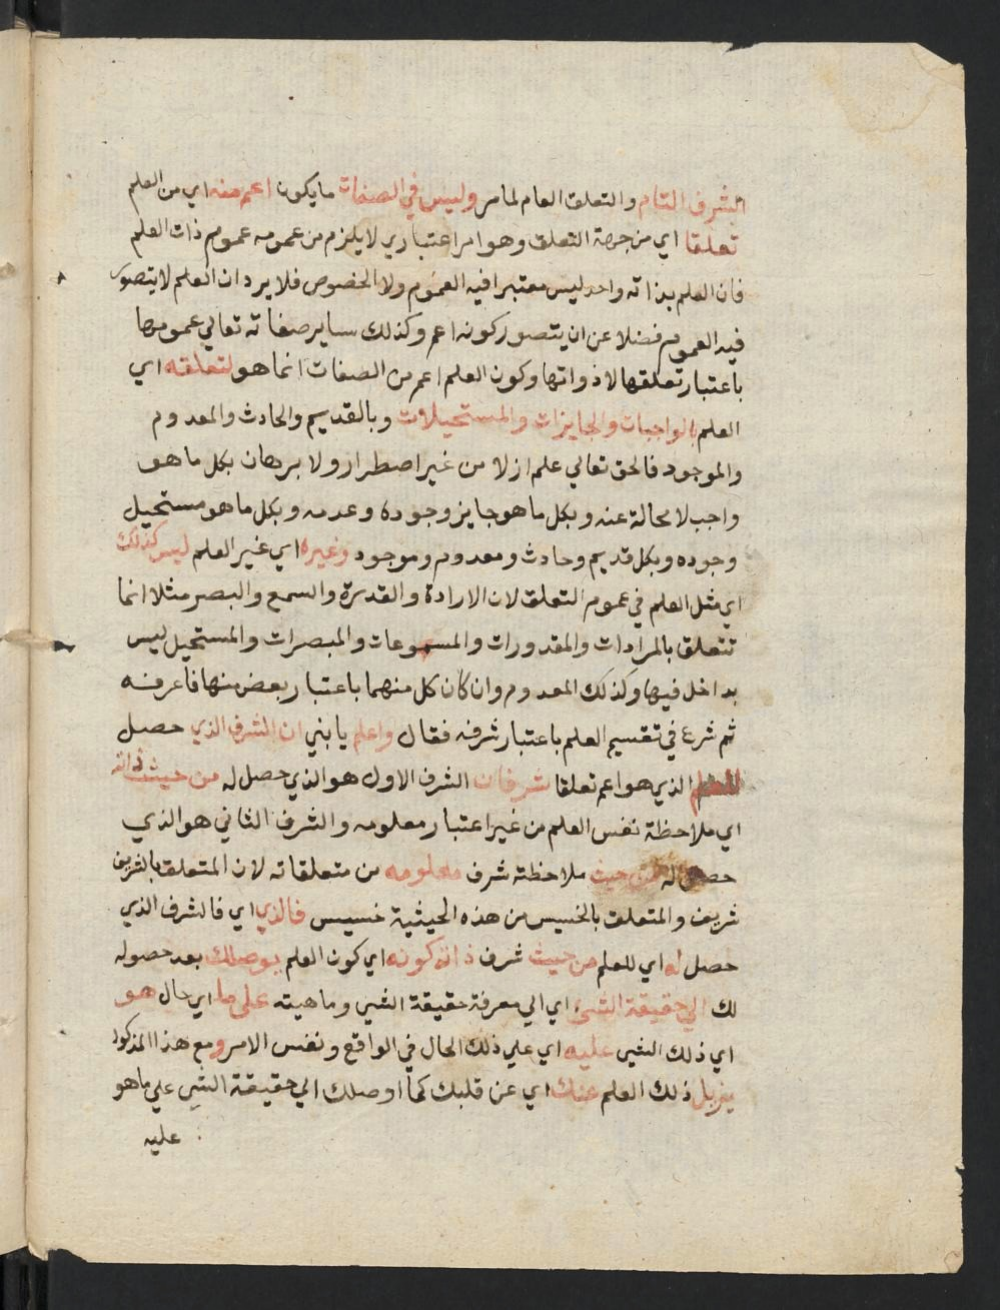 الشرف التام والتعلق العام لمامر وليس في الصفات مايكون اعم منه اي من العلم
تعلقا اي من جهة التعلق وهو امر اعتباري لا يلزم من عمومه عموم ذات العلم
فان العلم بذاته واحد ليس معتبرا فيه العموم ولا الخصوص فلا يرد ان العلم لا يتصور
فيه العموم فضلا عن ان يتصور كونه اعم وكذلك ساير صفاته تعالي عمومها
باعتبار تعلقها لا ذواتها وكون العلم اعم من الصفات انما هو لتعلقه اي
العلم بالواجبات والجايزات والمستحيلات وبالقديم والحادث والمعدوم
والموجود فالحق تعالي علم ازلا من غير اضطرار ولا برهان بكل ما هو
واجب لا محالة عنه وبكل ما هو جايز وجوده وعدمه وبكل ما هو مستحيل
وجوده وبكل قديم وحادث ومعدوم وموجود وغيره اي غير العلم ليس كذلك
اي مثل العلم في عموم التعلق لان الارادة والقدرة والسمع والبصر مثلا انما
تتعلق بالمرادات والمقدورات والمسموعات والمبصرات والمستحيل ليس
بداخل فيها وكذلك المعدوم وان كان كل منهما باعتبار بعض منها فاعرفه
ثم شرع في تقسيم العلم باعتبار شرفه فقال واعلم يا بني ان الشرف الذي حصل
للعلم الذي هو اعم تعلقا شرفان الشرف الاول هو الذي حصل له من حيث ذاته
اي ملاحظة نفس العلم من غير اعتبار معلومه والشرف الثاني هو الذي
حصل له من حيث ملاحظته شرف معلومه من متعلقاته لان المتعلق بالشريف
شريف والمتعلق بالخسيس من هذه الحيثية خسيس فالذي اي فالشرف الذي
حصل له اي للعلم من حيث شرف ذاته كونه اي كون العلم يوصلك بعد حصوله
لك الي حقيقة الشي اي الي معرفة حقيقة الشي وماهيته علي ما اي حال هو
اي ذلك الشي عليه اي علي ذلك الحال في الواقع ونفس الامر ومع هذا المذكور
يزيل ذلك العلم عنك اي عن قلبك كما اوصلك الي حقيقة الشي علي ما هو
عليه